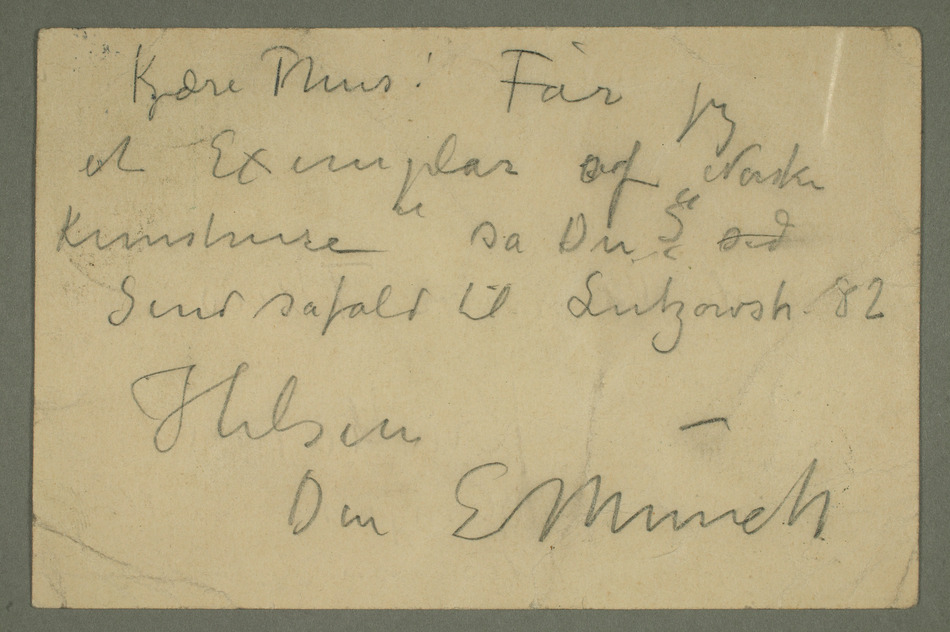 Kjære Thiis! Får jeg
et Exemplar af „Norske
Kunstnere“ sa Du?
Send såfald til Lutzowstr. 82
Hilsen
Din EMunch